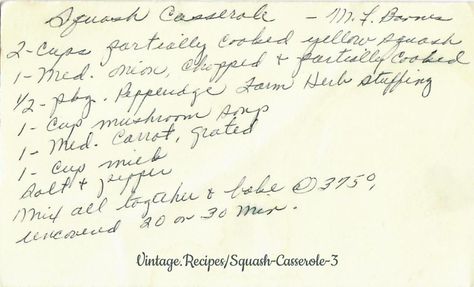 Squash Casserole - M. F. Barnes
2-cups partially cooked yellow squash
1-Med. onion, chopped & partially cooked
1/2-pkg. Pepperidge Farm Herb stuffing
1-cup mushroom soup
1-Med. Carrot, grated
1-cup milk
Salt & pepper
Mix all together & bake @ 375°,
uncovered 20 or 30 Min.
Vintage.Recipes/Squash-Casserole-3